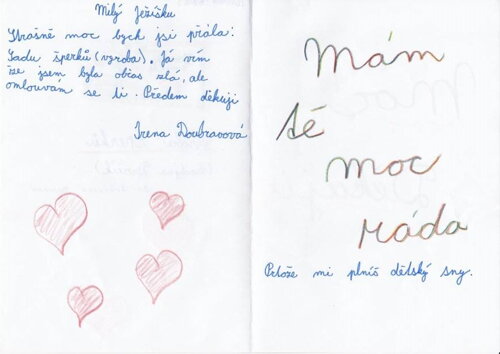 Milý Ježíšku
Strašně moc bych jsi přála:
Sadu šperků (výroba). Já vím
že jsem byla občas zlá, ale
omlouvám se ti. Předem děkuji
Irena Doubravová
Mám
tě
moc
ráda
Prtože mi plníš dětský sny.